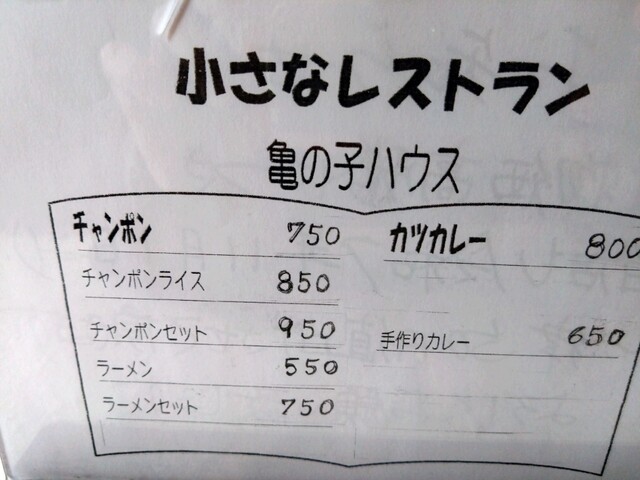 小さなレストラン
亀の子ハウス
チャンポン 750
チャンポンライス 850
チャンポンセット 950
ラーメン 550
ラーメンセット 750
カツカレー 800
手作りカレー 650